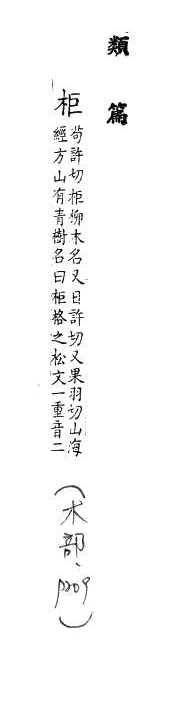 類篇
柜
苟許切柜柳木名又臼許切又果羽切山海
經方山有青樹名曰柜格之松文一重音二
(木部、p209)